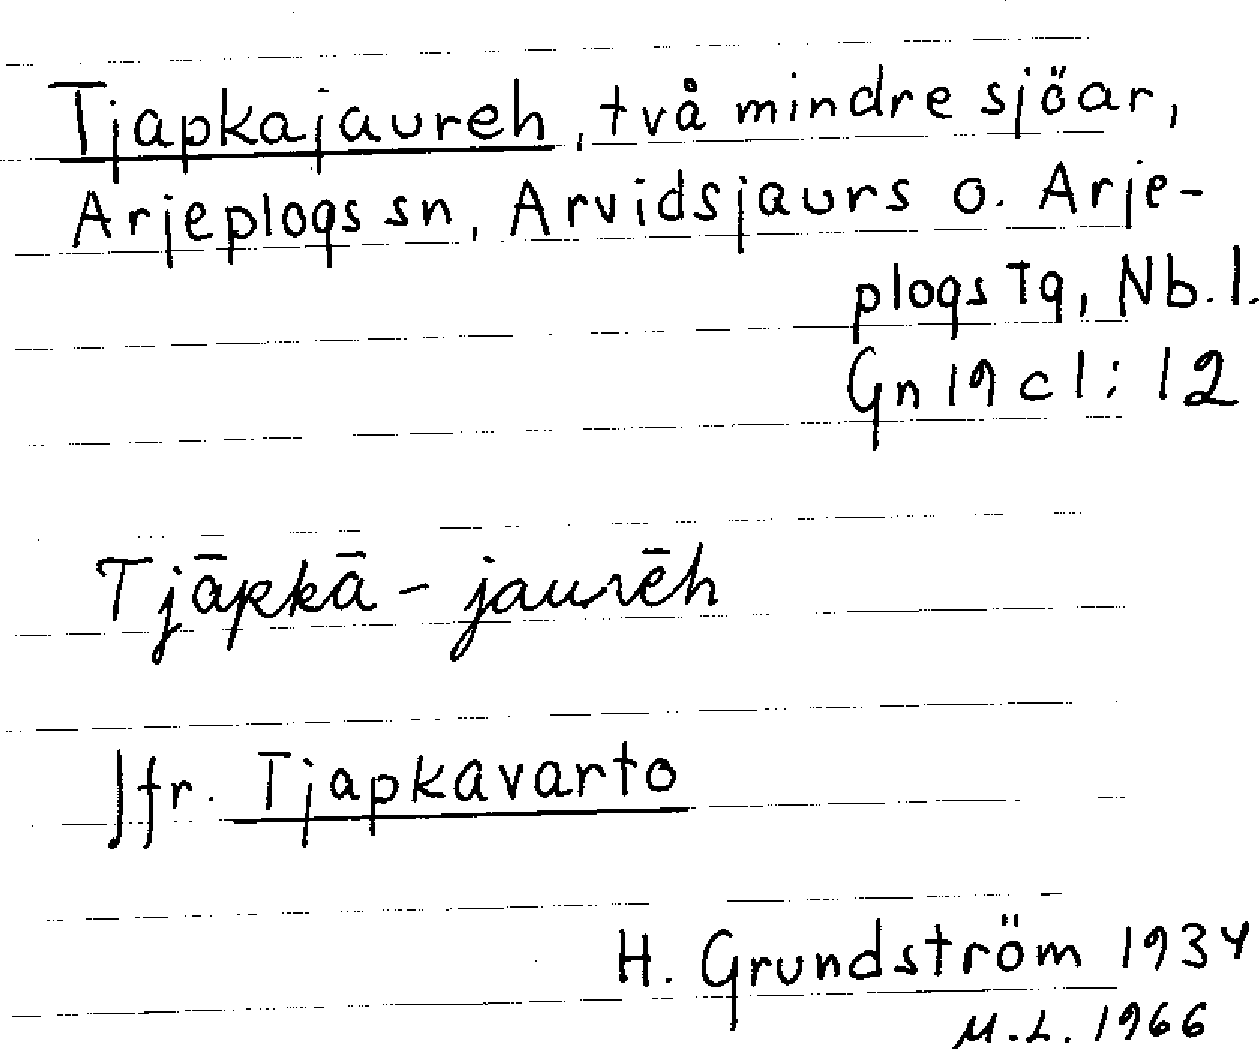 Tjapkajaureh, två mindre sjöar,
Arjeplogs sn, Arvidsjaurs o. Arje-
plogs Tg, Nb. l.
Gn 19 c 1 : 12
Tjāpkā - jaurēh
Jfr. Tjapkavarto
H. Grundström 1934
M.L. 1966